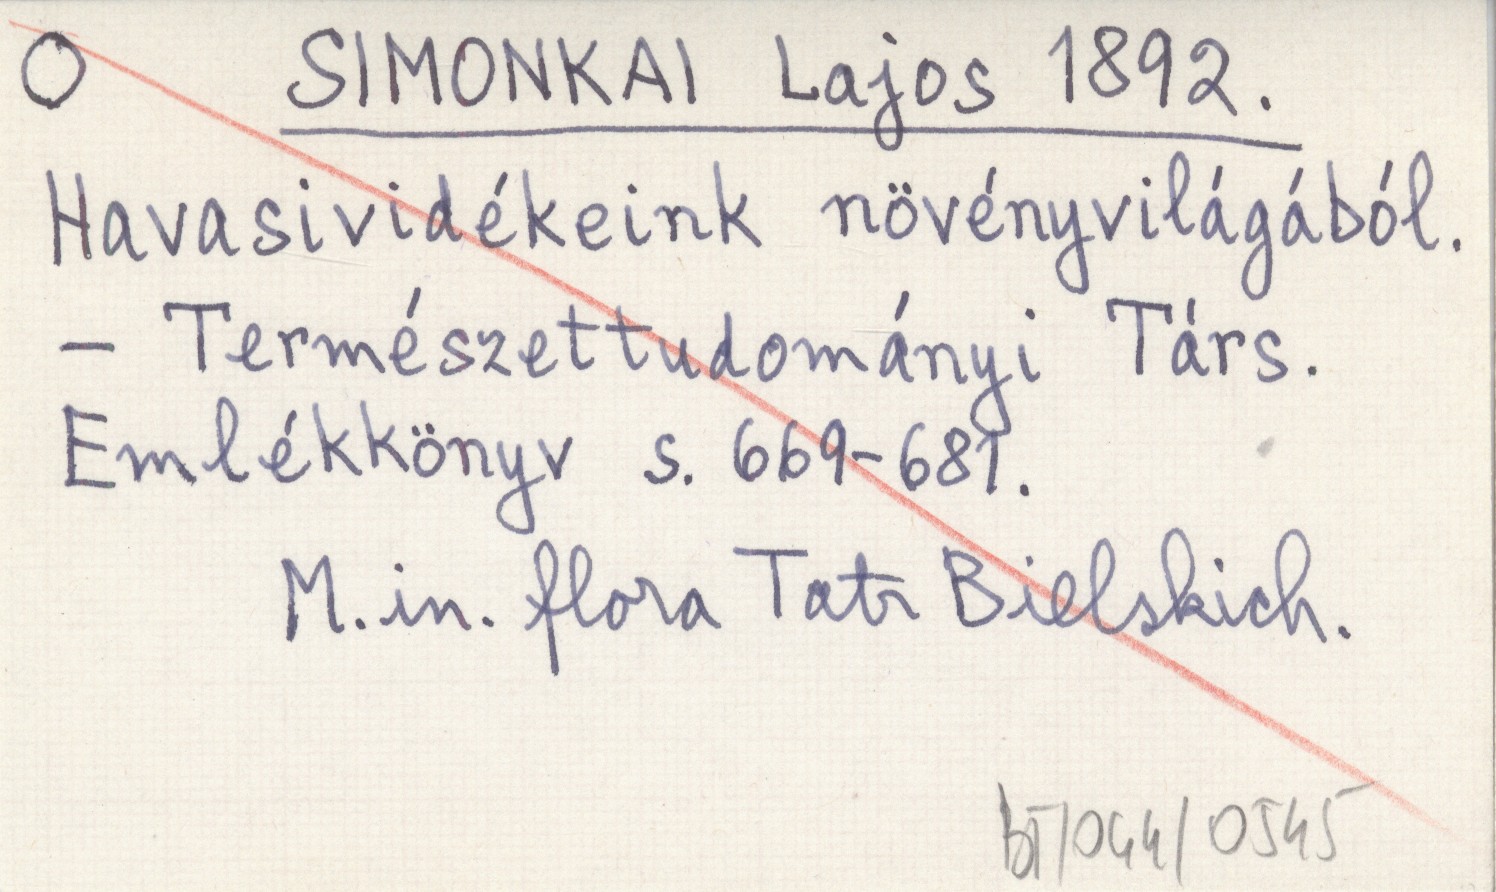 O SIMONKAI Lajos 1892.
Havasividékeink növényvilágából.
— Természettudományi Társ.
Emlékkönyv s. 669-681.
M.in. flora Tatr Bielskich.
BT/044/0545